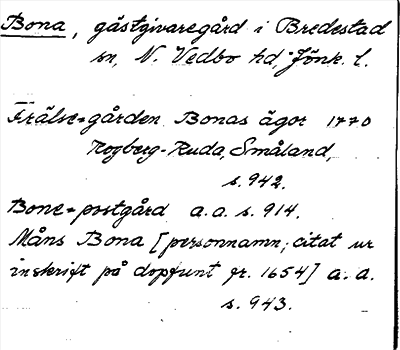 Bona, gästgivaregård i Bredestad
sn, N. Vedbo hd, Jönk. l.
Frälse-gården Bonas ägor 1770
Rogberg-Ruda, Småland,
s. 942.
Bone-postgård a.a. s. 914.
Måns Bona [personnamn; citat ur
inskrift på dopfunt fr. 1654] a.a.
s. 943.